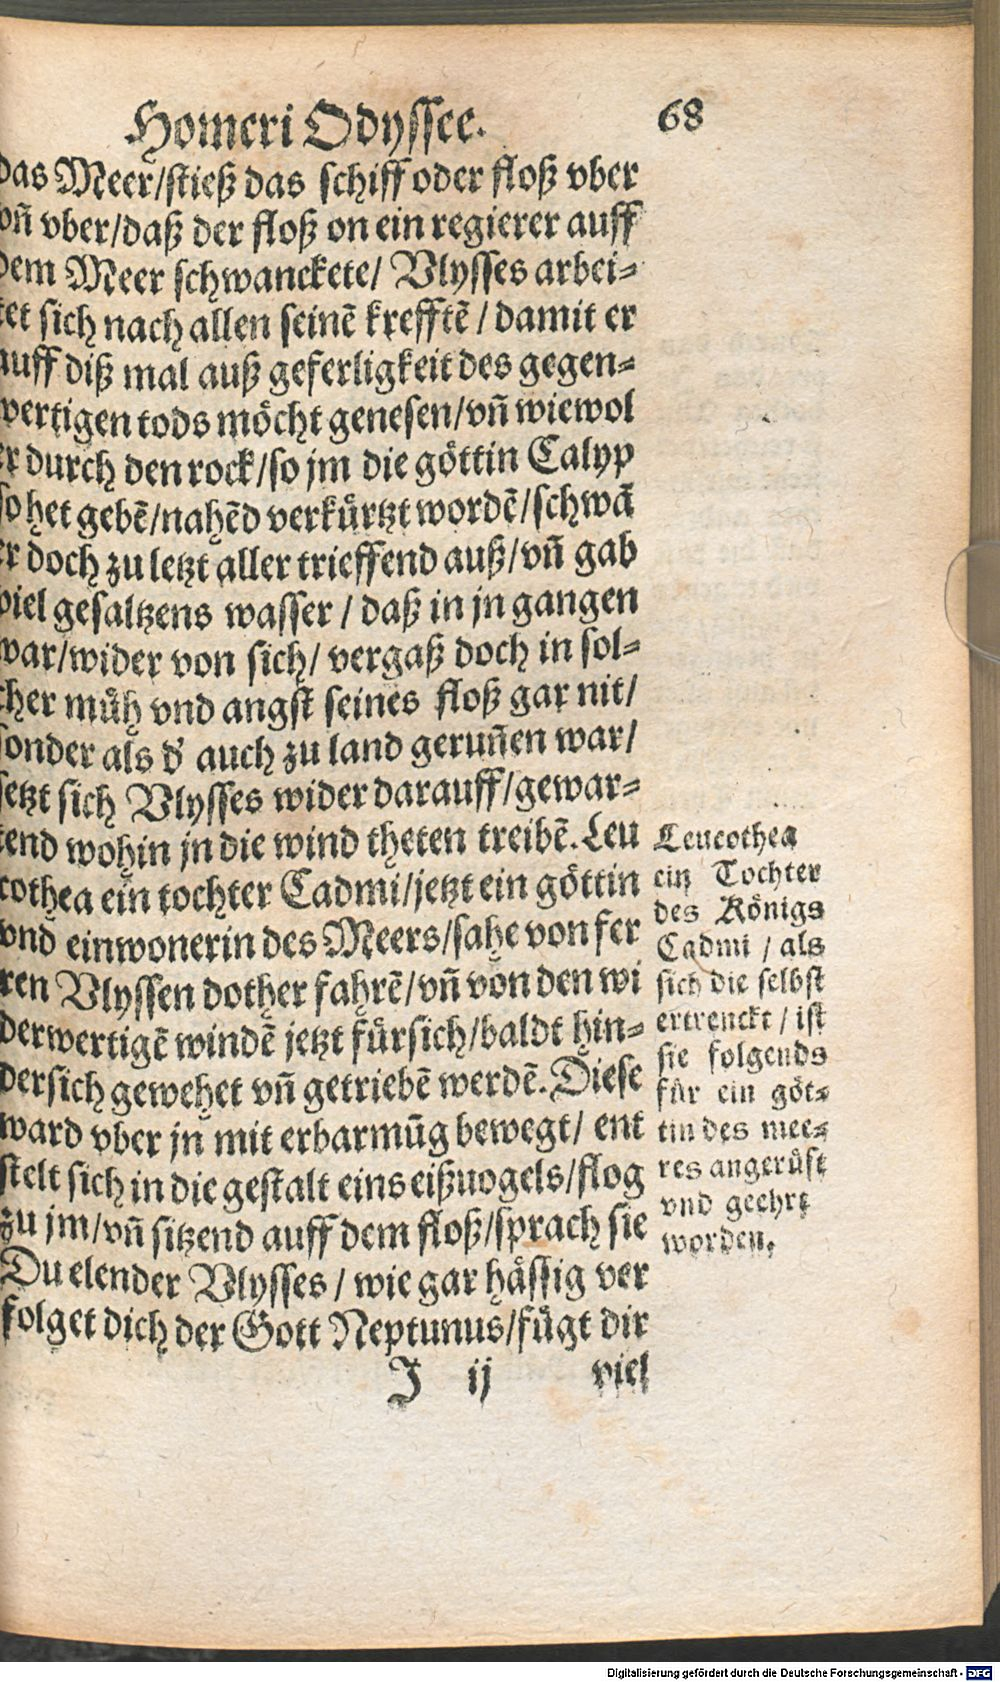 Homeri Odyssee. 68
das Meer/stieß das schiff oder floß vber
vñ vber/daß der floß on ein regierer auff
dem Meer schwanckete/ Vlysses arbei=
tet sich nach allen seinẽ krefftẽ / damit er
auff diß mal auß geferligkeit des gegen=
wertigen tods möcht genesen/vñ wiewol
er durch den rock/so jm die göttin Calyp
so het gebẽ/nahẽd verkürtzt wordẽ/schwã
er doch zu letzt aller trieffend auß/vñ gab
viel gesaltzens wasser / daß in jn gangen
war/wider von sich/ vergaß doch in sol=
cher müh vnd angst seines floß gar nit/
sonder als d' auch zu land geruñen war/
setzt sich Vlysses wider darauff/gewar=
tend wohin jn die wind theten treibẽ. Leu
cothea ein tochter Cadmi/jetzt ein göttin
vnd einwonerin des Meers/sahe von fer
ren Vlyssen dother fahrẽ/vñ von den wi
derwertigẽ windẽ jetzt fürsich/baldt hin=
dersich gewehet vñ getriebẽ werdẽ. Diese
ward vber jn mit erbarmũg bewegt/ ent
stelt sich in die gestalt eins eißuogels/flog
zu jm/vñ sitzend auff dem floß/sprach sie
Du elender Vlysses / wie gar hässig ver
folget dich der Gott Neptunus/fügt dir
J ij viel
Leucothea
ein Tochter
des Königs
Cadmi / als
sich die selbst
ertrenckt / ist
sie folgends
für ein göt=
tin des mee=
res angerüft
vnd geehrt
worden.
Digitalisierung gefördert durch die Deutsche Forschungsgemeinschaft - DFG